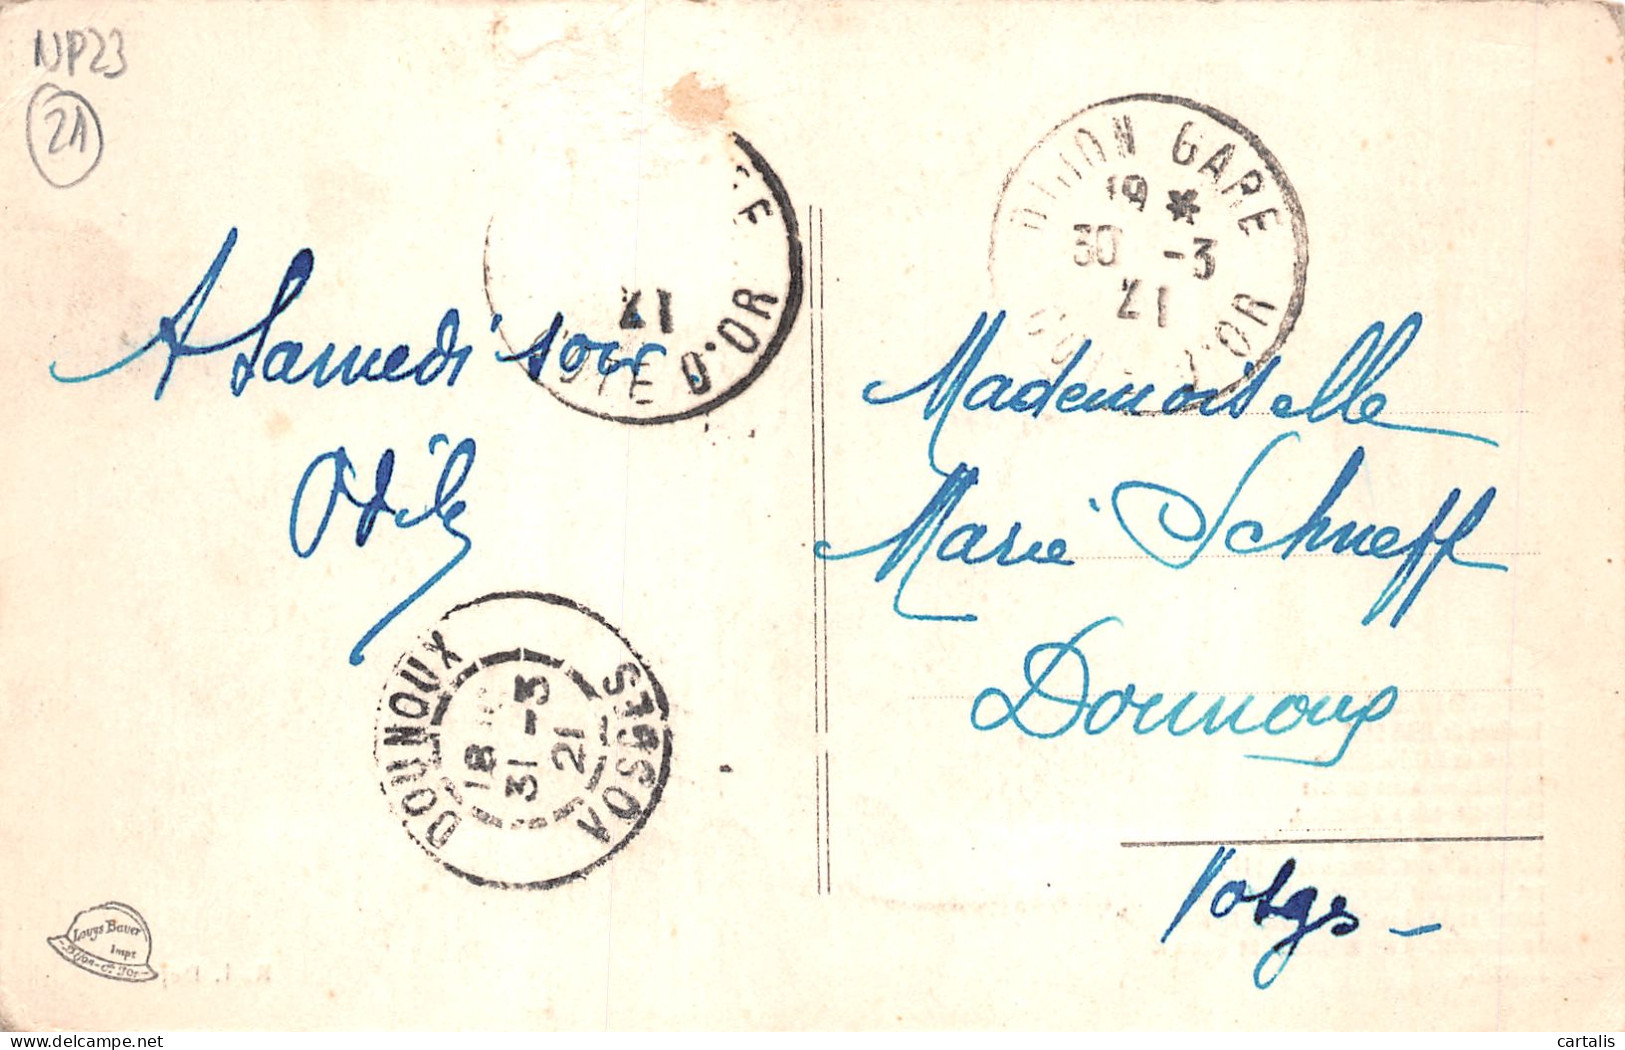 NP23
21
DIJON GARE
19 *
30 -3
21
CÔTE D'OR
21
CÔTE D'OR
A Samedi soir
Odile
Mademoiselle
Marie Schneff
Dounoux
Vosges -
DOUNOUX
18
31 -3
21
VOSGES
Louys Bauer
Impt
Dijon - Cte d'Or
delcampe.net
cartalis